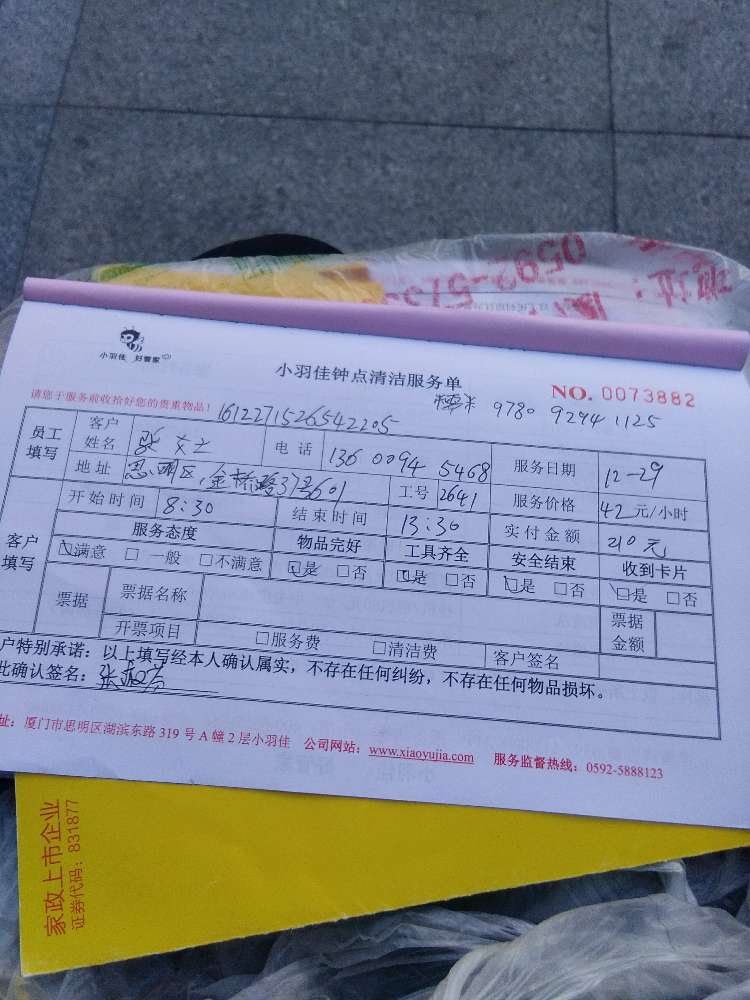 0592-573
小羽佳 好管家
小羽佳钟点清洁服务单
NO. 0073882
请您于服务前收拾好您的贵重物品！ 1612271526542205 糯米 9780 9294 1125
员工填写 客户姓名 张女士 电话 136 0094 5468 服务日期 12-29
地址 思明区,金桥路37#601 工号 2641 服务价格 42 元/小时
客户填写 开始时间 8:30 结束时间 13:30 实付金额 210元
服务态度 物品完好 工具齐全 安全结束 收到卡片
☑满意 □ 一般 □不满意 ☑是 □否 ☑是 □否 ☑是 □否 ☑是 □否
票据 票据名称 票据金额
开票项目 □服务费 □清洁费 客户签名
户特别承诺：以上填写经本人确认属实，不存在任何纠纷，不存在任何物品损坏。
此确认签名：
址：厦门市思明区湖滨东路 319 号 A 幢 2 层小羽佳 公司网站：www.xiaoyujia.com 服务监督热线：0592-5888123
家政上市企业
证券代码：831877